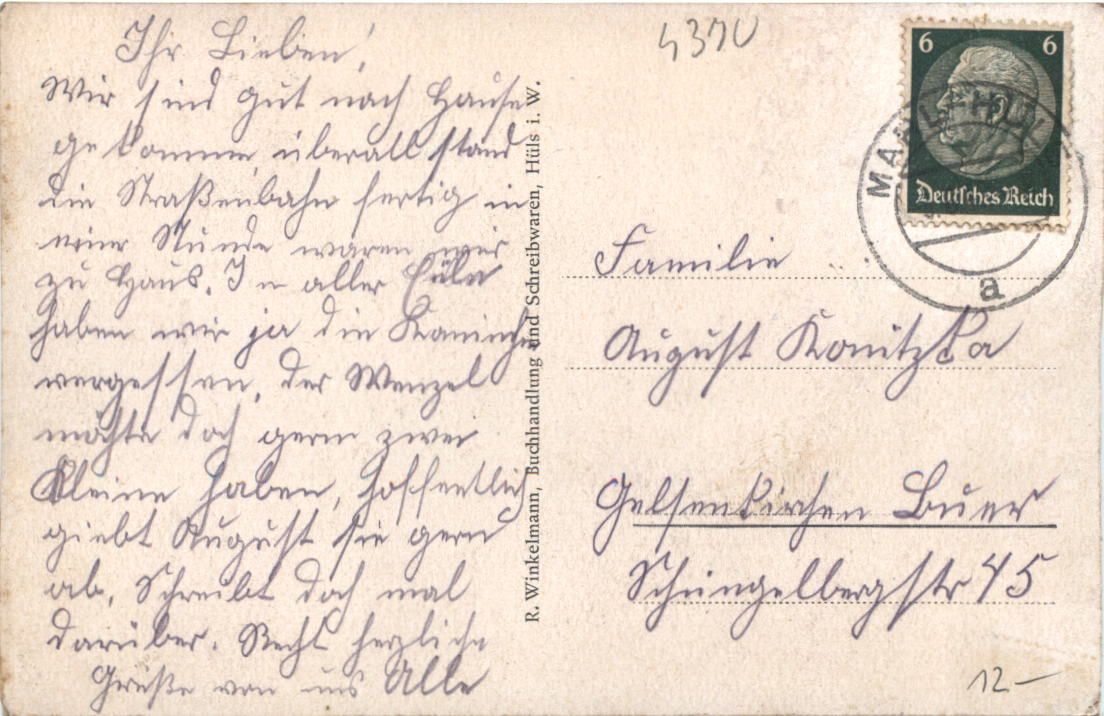 Ihr Lieben!
Wir sind gut nach Hause
gekommen überall stand
die Straßenbahn fertig in
einer Stunde waren wir
zu Haus. In aller Eile
haben wir ja die Kaninchen
vergessen, der Wenzel
möchte doch gern zwei
Kleine haben, hoffentlich
giebt August sie gern
ab, Schreibt doch mal
darüber. Recht herzliche
Grüße von uns Alle
R. Winkelmann, Buchhandlung und Schreibwaren, Hüls i. W.
4370
6 6
Deutsches Reich
MARL-HÜLS
a
Familie
August Konitzka
Gelsenkirchen Buer
Schüngelbergstr 45
12-